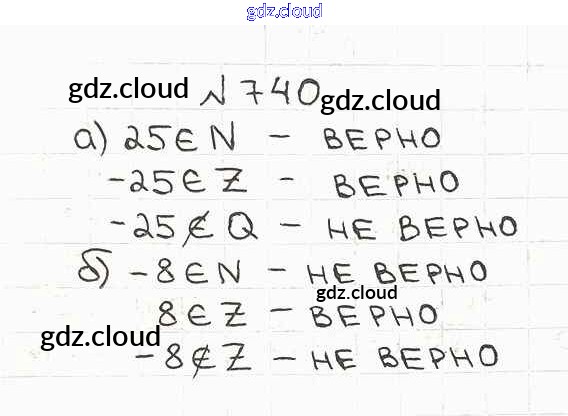 gdz.cloud
gdz.cloud № 740 gdz.cloud
а) 25 ∈ N – ВЕРНО
-25 ∈ Z – ВЕРНО
-25 ∉ Q – НЕ ВЕРНО
б) -8 ∈ N – НЕ ВЕРНО
gdz.cloud
8 ∈ Z – ВЕРНО
gdz.cloud
-8 ∉ Z – НЕ ВЕРНО